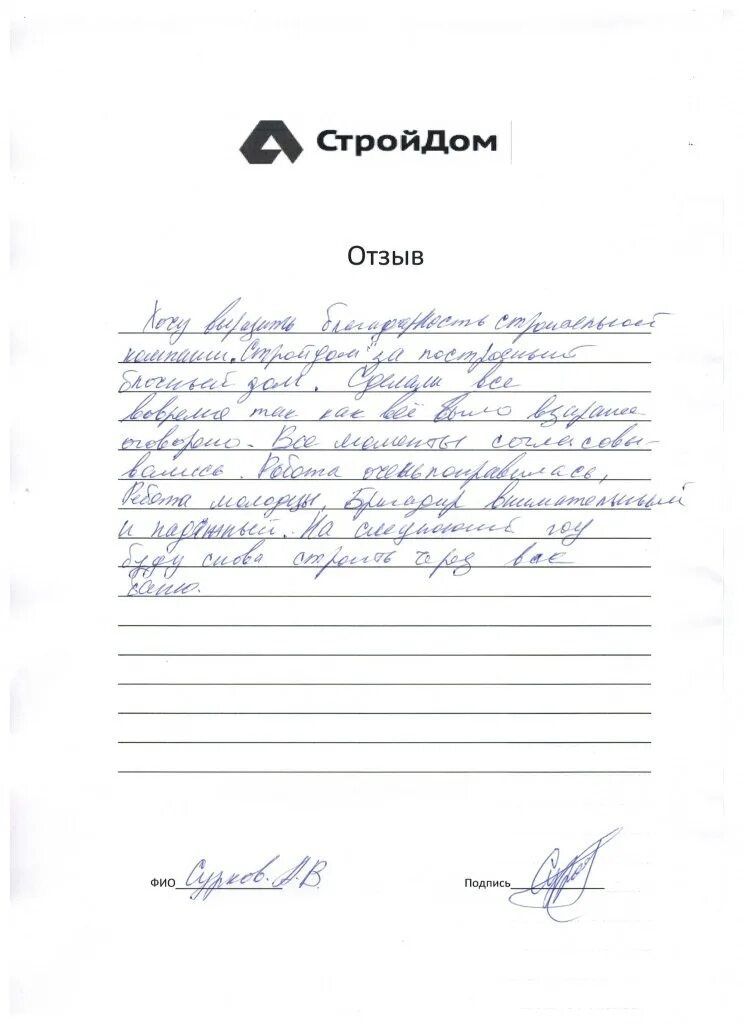 СтройДом
Отзыв
Хочу выразить благодарность строительной
компании "Стройдом" за построеный
блочный дом. Сделали все
вовремя так как всё было взаранее
оговорено. Все моменты согласовы-
вались. Робота очень понравилась,
Ребята молодцы, Бригадир внимательный
и надёжный. На следующий год
буду снова строить через вас
баню.
ФИО Сурков. А.В.
Подпись